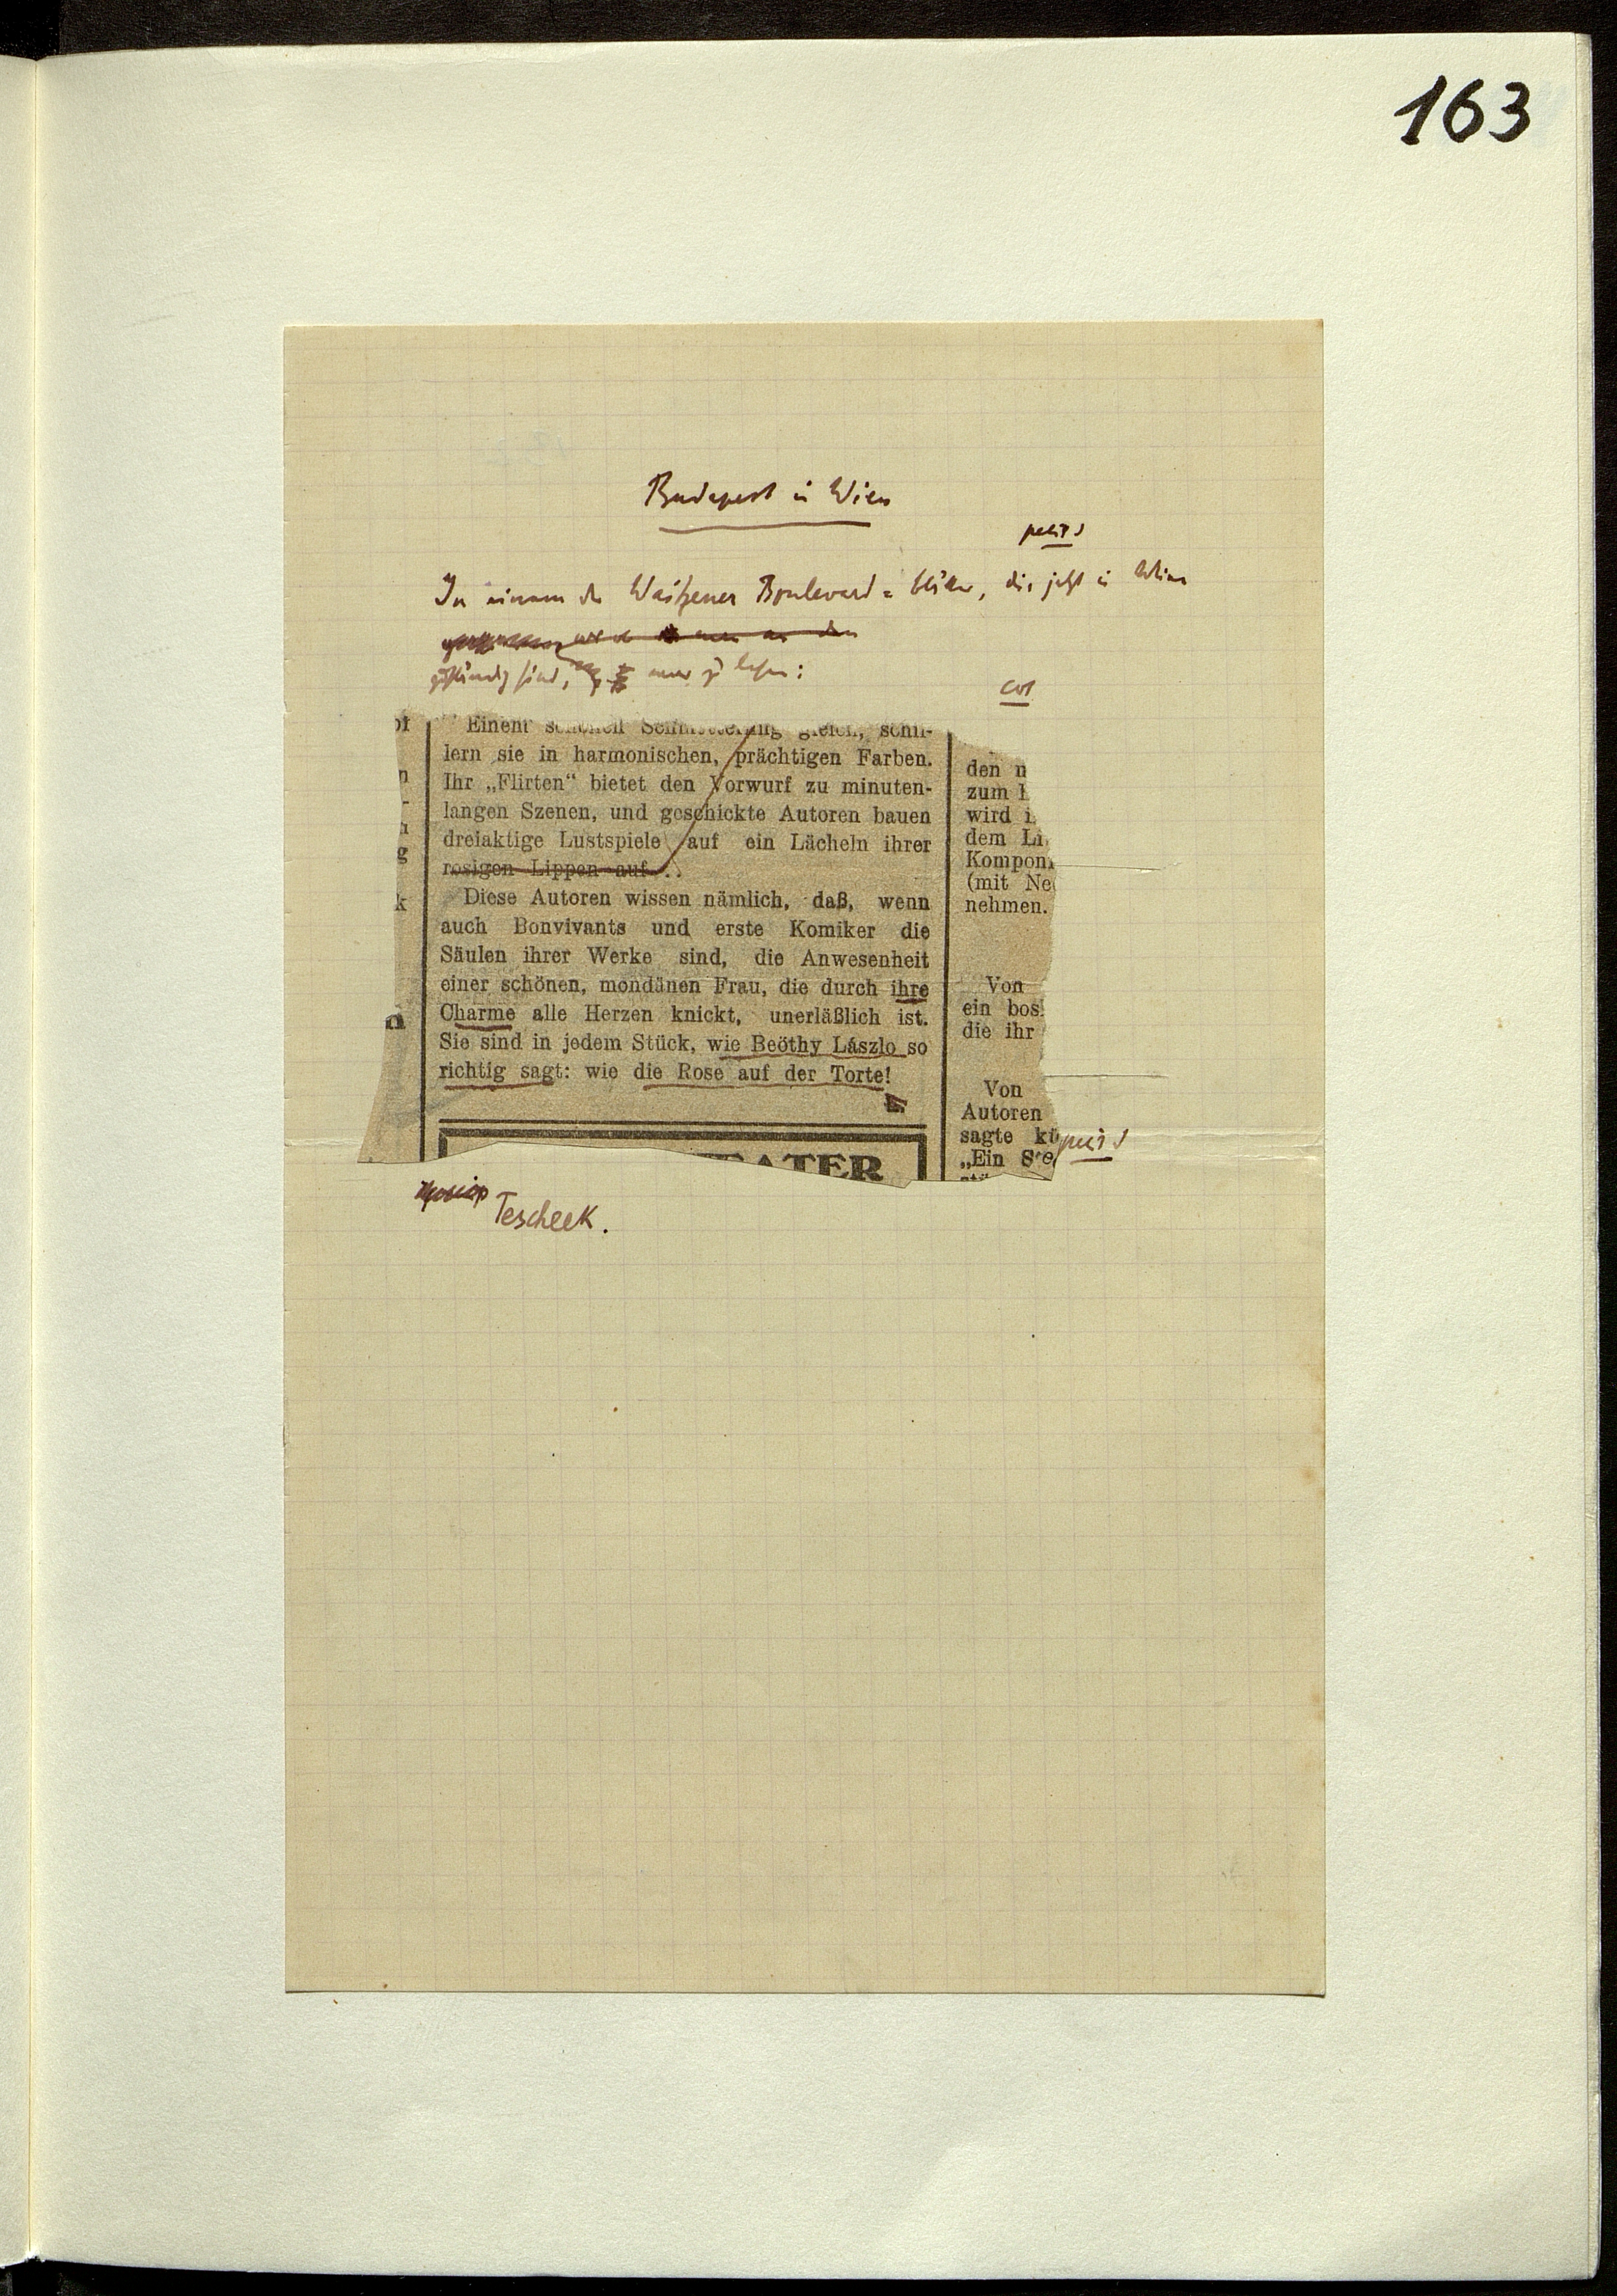 163
Budapest in Wien
petit
In einem der Waitzener Boulevard=blätter, die jetzt in Wien
zuständig sind, war zu lesen:
Einem schönen Schmetterling gleich, schil-
lern sie in harmonischen, prächtigen Farben.
Ihr „Flirten“ bietet den Vorwurf zu minuten-
langen Szenen, und geschickte Autoren bauen
dreiaktige Lustspiele auf ein Lächeln ihrer
rosigen Lippen auf...
Diese Autoren wissen nämlich, daß, wenn
auch Bonvivants und erste Komiker die
Säulen ihrer Werke sind, die Anwesenheit
einer schönen, mondänen Frau, die durch ihre
Charme alle Herzen knickt, unerläßlich ist.
Sie sind in jedem Stück, wie Beöthy Lászlo so
richtig sagt: wie die Rose auf der Torte!
EATER
den
zum
wird
dem
(mit
nehmen.
Von
ein
die ihr
Von
Autoren
sagte
„Ein
petit
Tescheek.